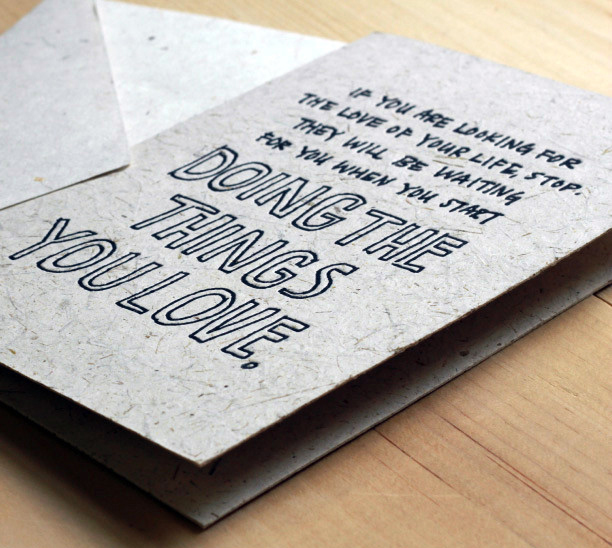 IF YOU ARE LOOKING FOR
THE LOVE OF YOUR LIFE, STOP.
THEY WILL BE WAITING
FOR YOU WHEN YOU START
DOING THE
THINGS
YOU LOVE.